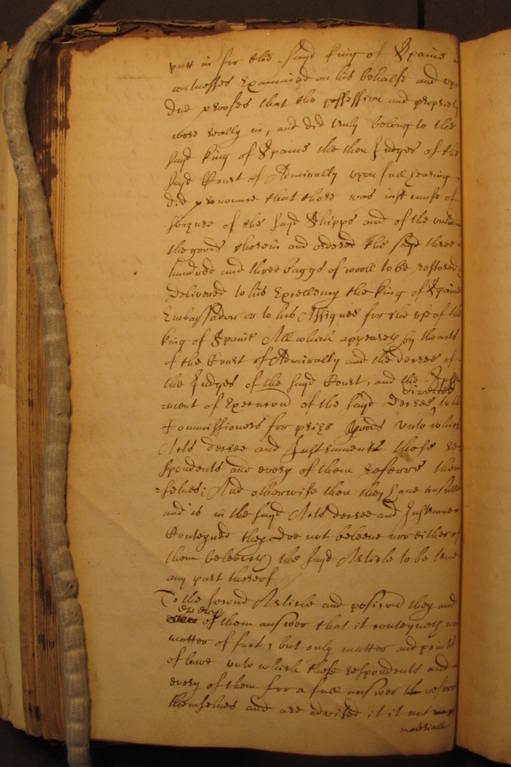 putt in for the sayd king of Spaine
witnesses examined on his behalfe and
due proofes that the possession and
were really in, and did truly belong to the
sayd king of Spaine the then Judges of the
sayd Court of Admiralty upon full hearing
did pronounce that there was just cause of
seizure of the sayd Shipps and of the
the goods therein and decreed the sayd three
hundred and three baggs of wooll to be restored
delivered to his Excellency the king of Spaine
Embassador or to his Assignes for the use of the
king of Spaine All which appeares by the acts
of the Court of Admiralty and the decree of
the Judges of the sayd Court, and the
directed
ment of Execution of the sayd decree, to the
Commissioners for prize goods unto which
Acts decree and Instrument these re
spondents and every of them referre them
=selves; And otherwise then they have
and is in the sayd Acts decree and
Conteyned they doe not beleeve nor either of
them beleeveth the sayd Article to be true
any part thereof
To the second Article and position they and
every
of them answer that it conteyneth noe
matter of fact, but only matter and point
of lawe unto which these respondents and
every of them for a full answer referre
themselves and are advised it is not
materiall